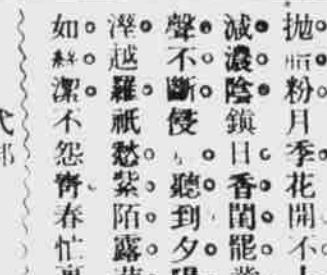 拋脂粉月季花開不
減濃陰鎖日香閨罷
聲不斷侵聽到夕陽
溼越羅祇愁紫陌露
如絲潔不怨齊春忙